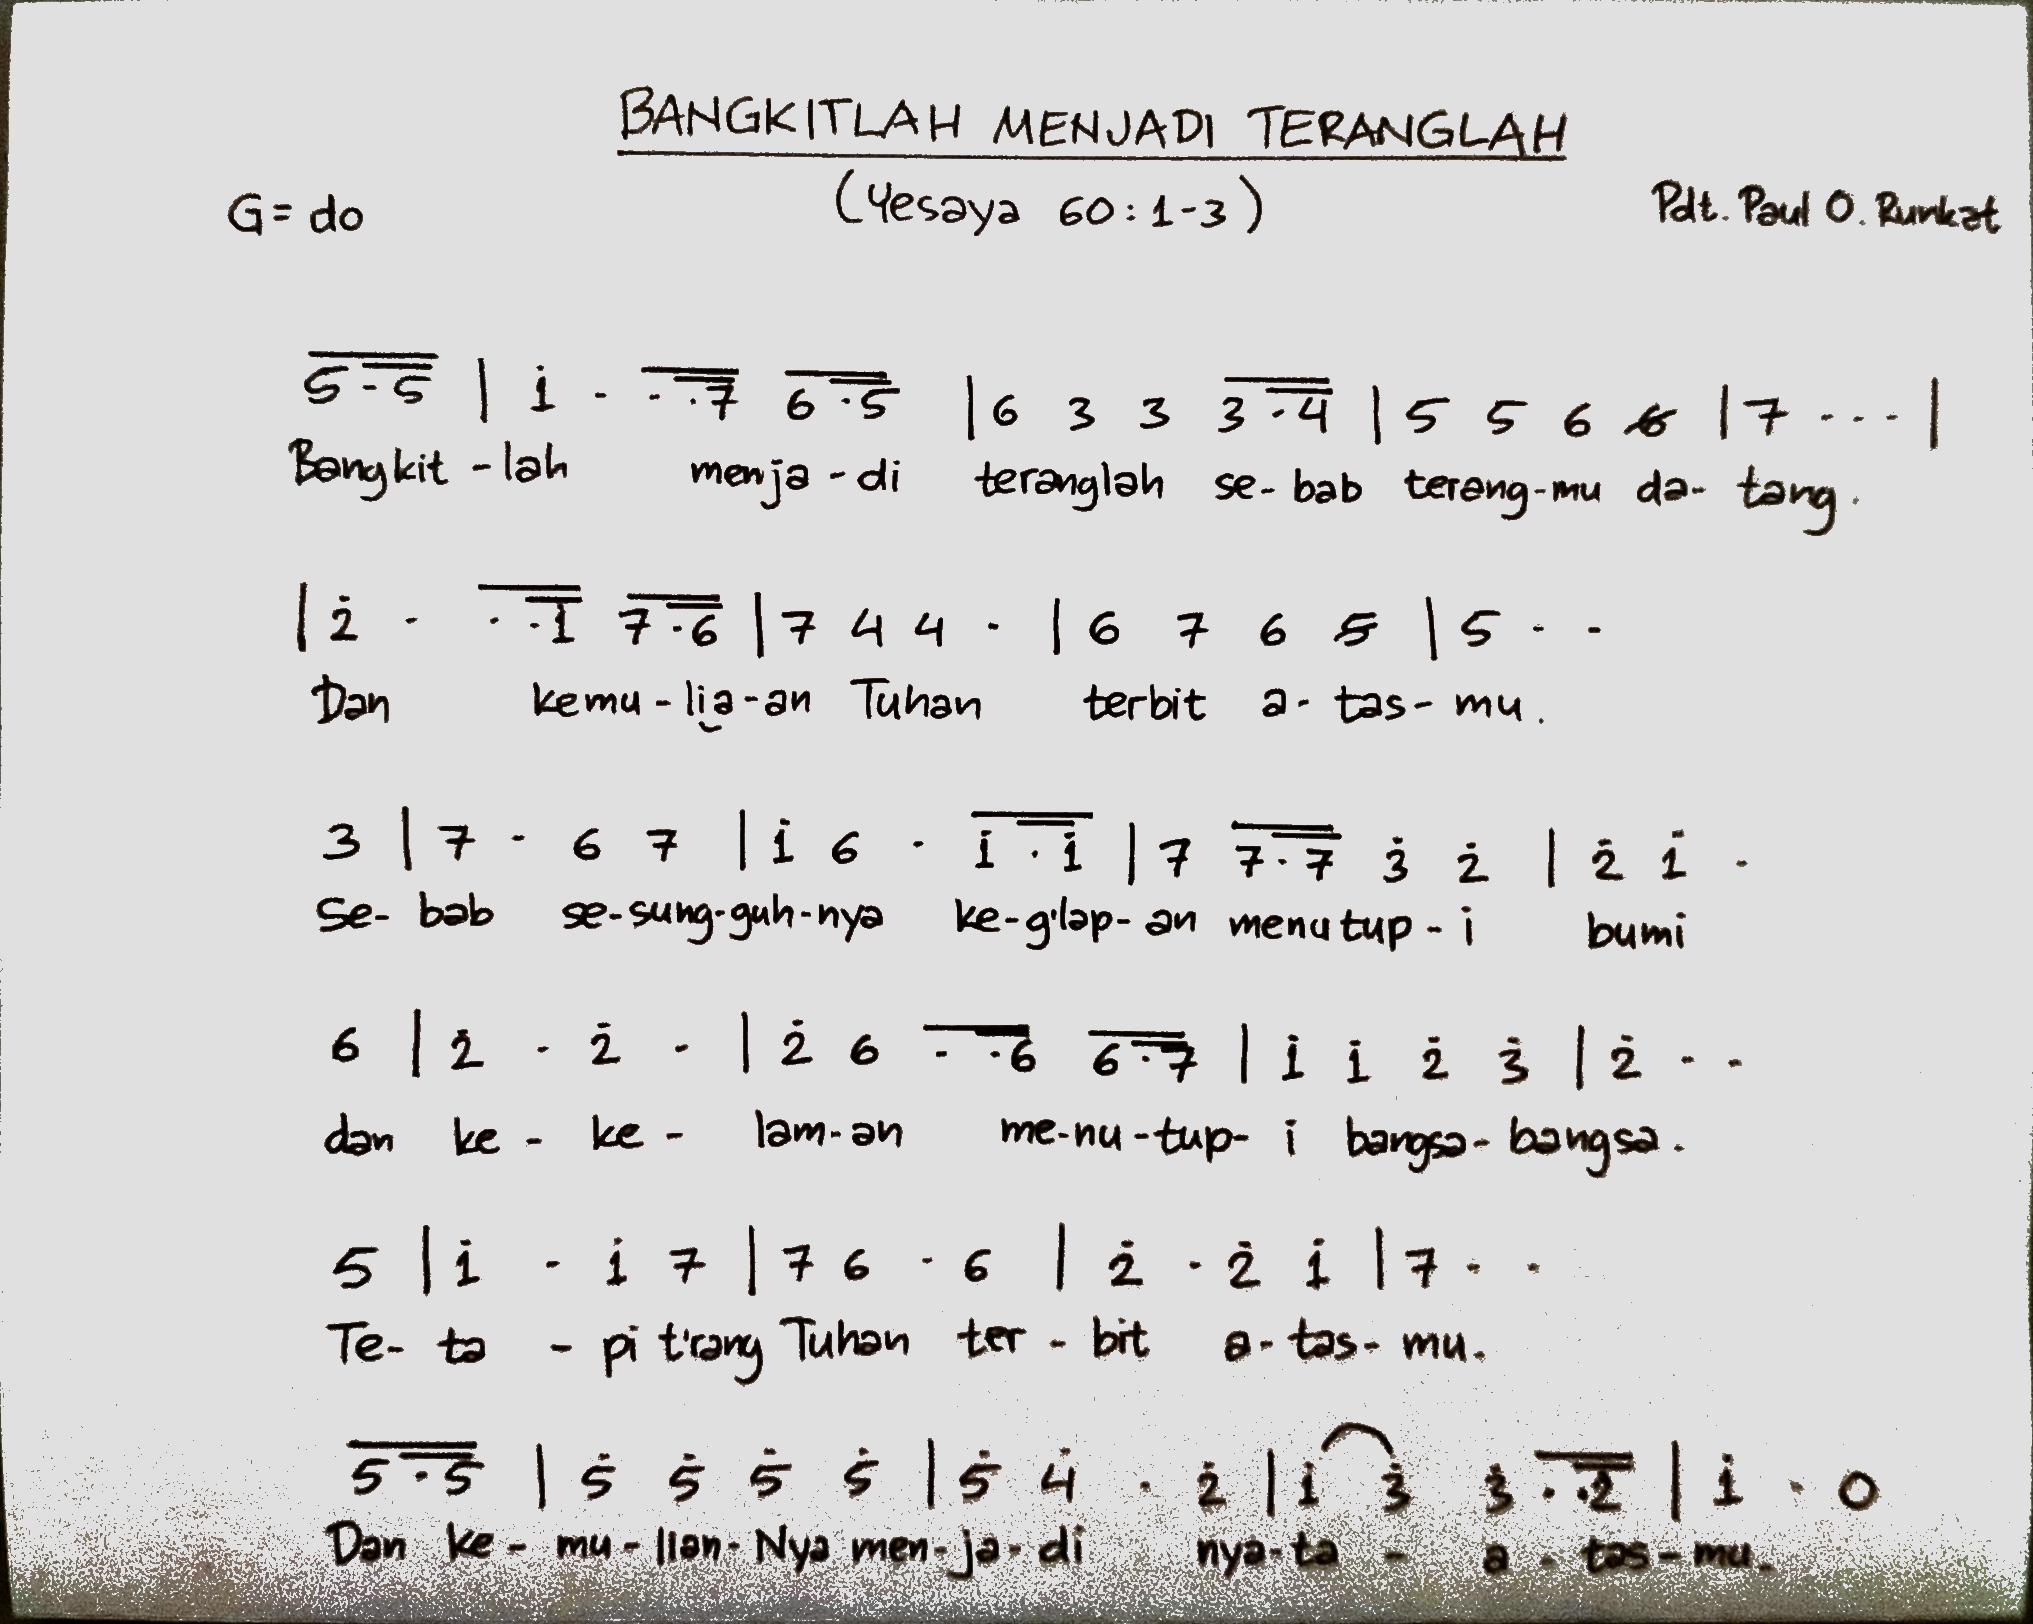 BANGKITLAH MENJADI TERANGLAH
G= do (Yesaya 60:1-3) Pdt. Paul O. Runkat
5 . 5 | i . . . 7 6 . 5 | 6 3 3 3 . 4 | 5 5 6 6 | 7 . . . |
Bangkit - lah menja - di teranglah se- bab terang-mu da- tang.
| 2̇ . . . 1 7 . 6 | 7 4 4 . | 6 7 6 5 | 5 . .
Dan kemu - lia-an Tuhan terbit a- tas- mu.
3 | 7 . 6 7 | i 6 . i . i | 7 7 . 7 3̇ 2̇ | 2̇ i .
Se- bab se-sung-guh-nya ke-g'lap- an menutup - i bumi
6 | 2̇ . 2̇ . | 2̇ 6 . . 6 6 . 7 | i i 2̇ 3̇ | 2̇ . .
dan ke - ke - lam-an me-nu-tup- i bangsa- bangsa.
5 | i . i 7 | 7 6 . 6 | 2̇ . 2̇ i | 7 . .
Te- ta - pi t'rang Tuhan ter - bit a- tas- mu.
5 . 5 | 5̇ 5̇ 5̇ 5̇ | 5̇ 4̇ . 2̇ | i 3̇ 3̇ . . 2̇ | i . 0
Dan ke - mu - lian- Nya men- ja - di nya-ta - a - tas - mu.